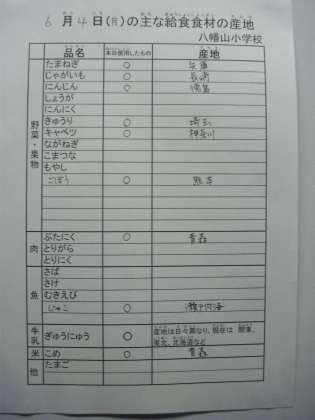 6月4日(月)の主な給食食材の産地
八幡山小学校
品名 本日使用したもの 産地
野菜・果物
たまねぎ ○ 兵庫
じゃがいも ○ 長崎
にんじん ○ 徳島
しょうが
にんにく
きゅうり ○ 埼玉
キャベツ ○ 神奈川
ながねぎ
こまつな
もやし
ごぼう ○ 熊本
肉
ぶたにく ○ 青森
とりがら
とりにく
魚
さば
さけ
むきえび
じゃこ ○ 瀬戸内海
牛乳 ぎゅうにゅう ○ 産地は日々異なり、現在は 関東、
東北、北海道など
米 こめ ○ 青森
他 たまご